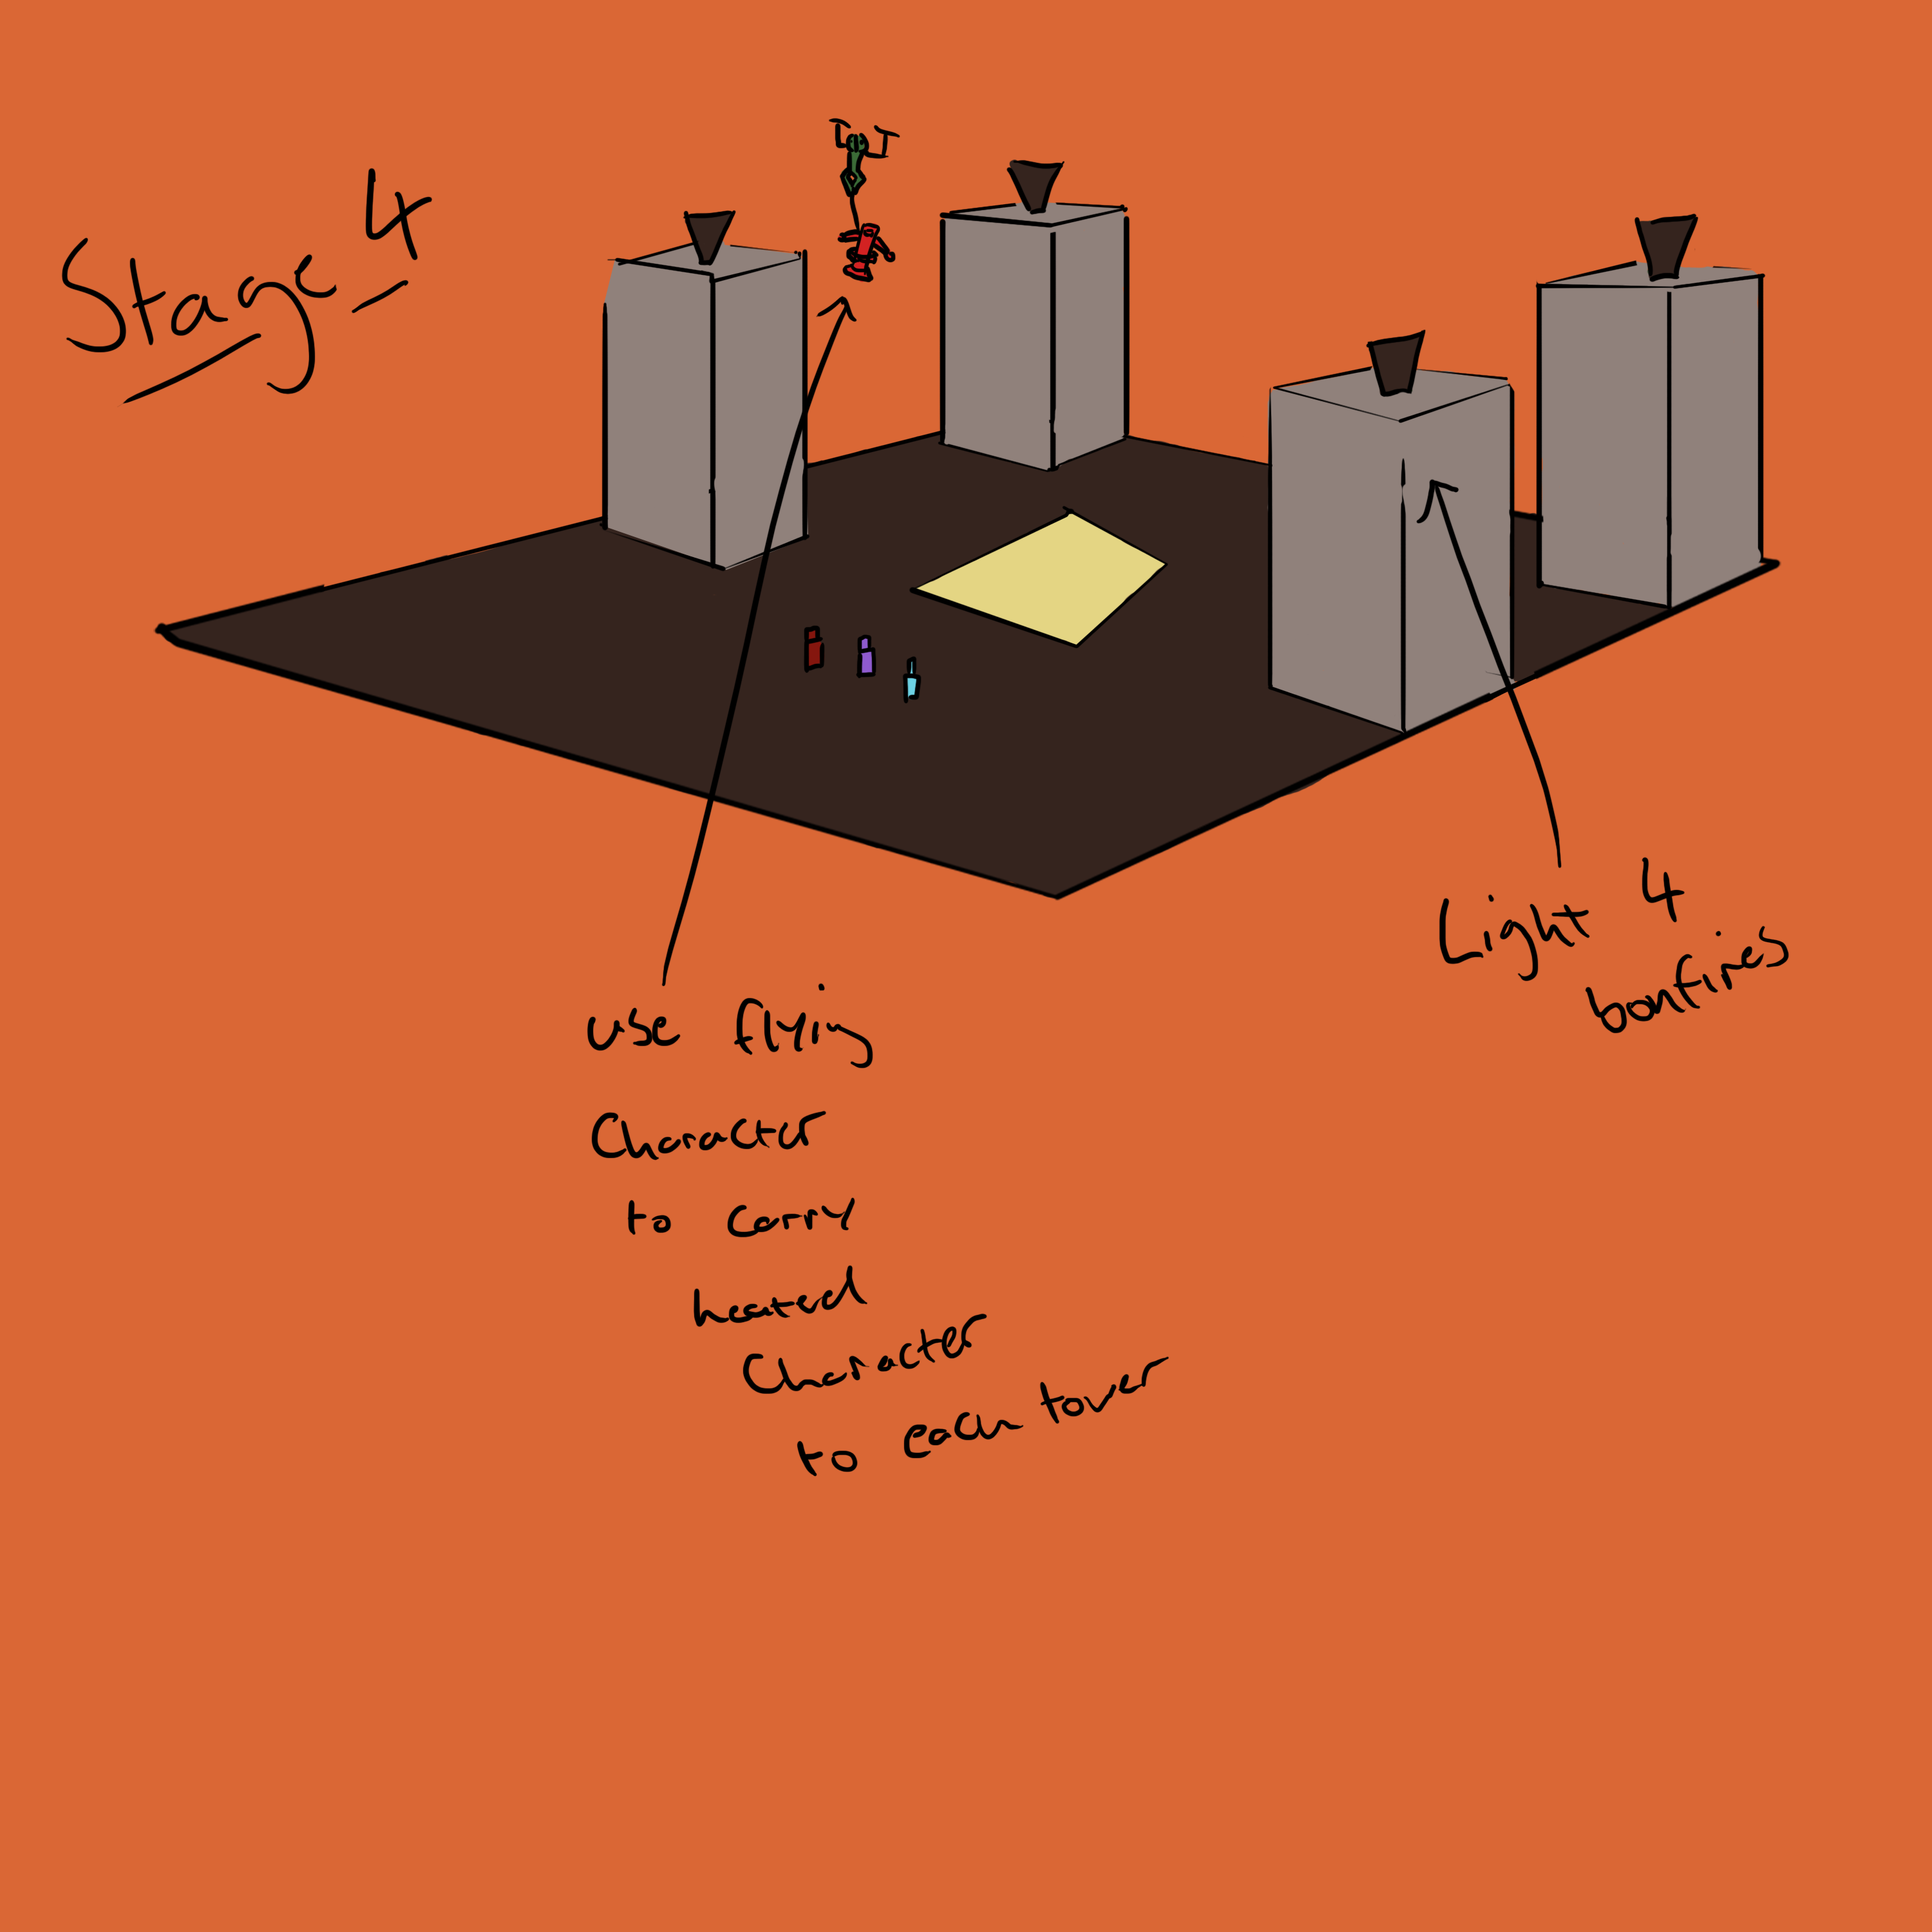 Stage 4
use flying
Character
to carry
heated
Character
to each tower
Light 4
bonfires